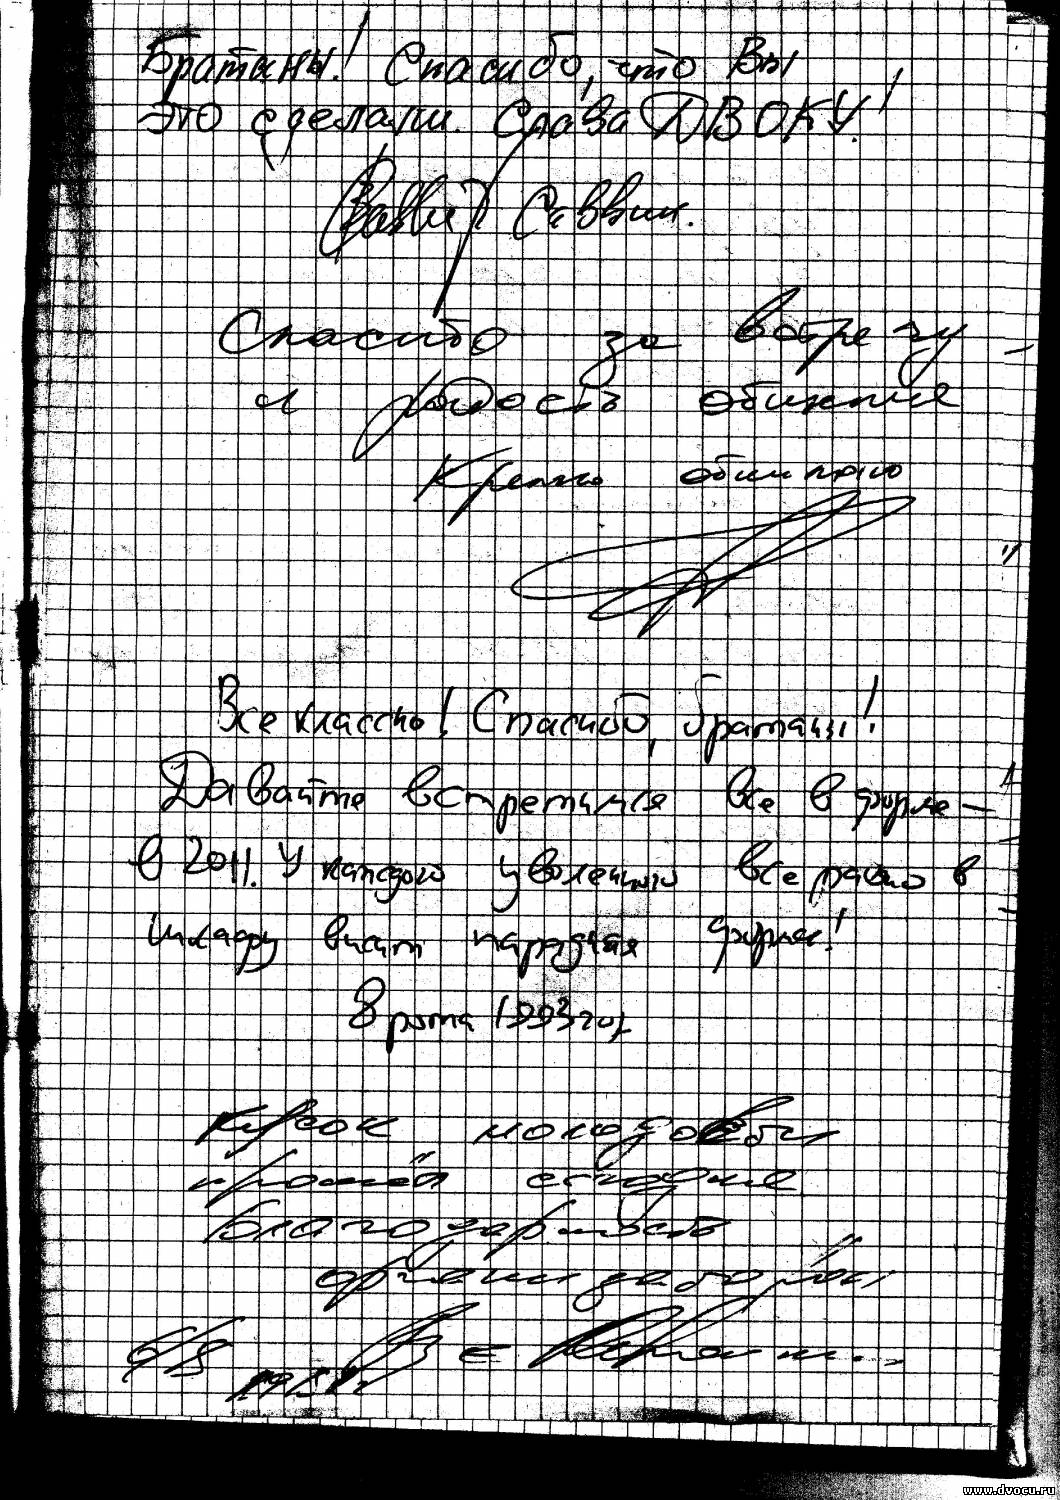 Братаны! Спасибо, что Вы
это сделали. Слава ДВОКУ!
Саввин.
Спасибо за встречу
и радость общения
Крепко обнимаю
Все классно! Спасибо, братаны!
Давайте встретимся все в форме –
в 2011. У каждого уволенного все равно в
шкафу висит парадная форма!
8 рота 1993 год
Кусок молодости
прошёл
Благодарность
организаторам
www.dvocu.ru